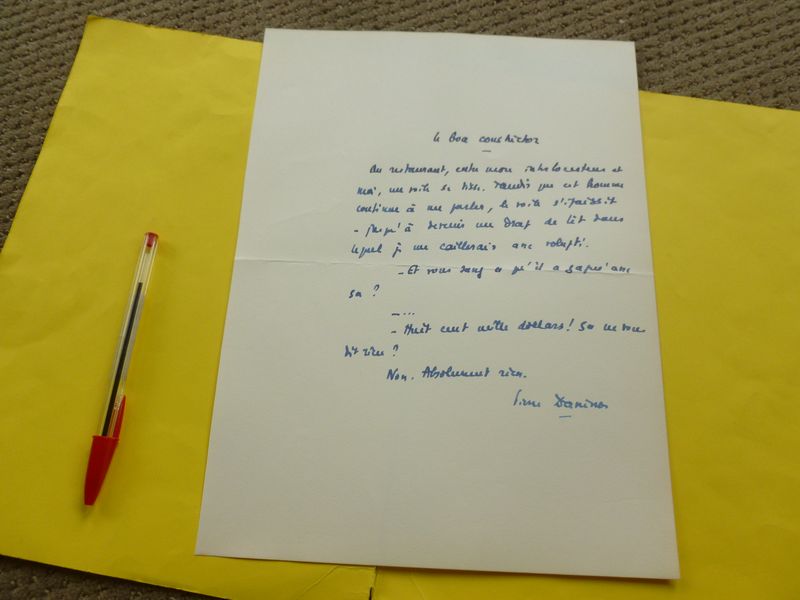 Le Boa constrictor
Au restaurant, entre mon interlocuteur et
moi, un voile se tisse. Tandis que cet homme
continue à me parler, le voile s'épaissit
- jusqu'à devenir un drap de lit dans
lequel je me avec volupté.
- Et vous savez ce qu'il a gagné avec
ça ?
- ...
- Huit cent mille dollars ! Ça ne vous
dit rien ?
Non. Absolument rien.
Pierre Daninos